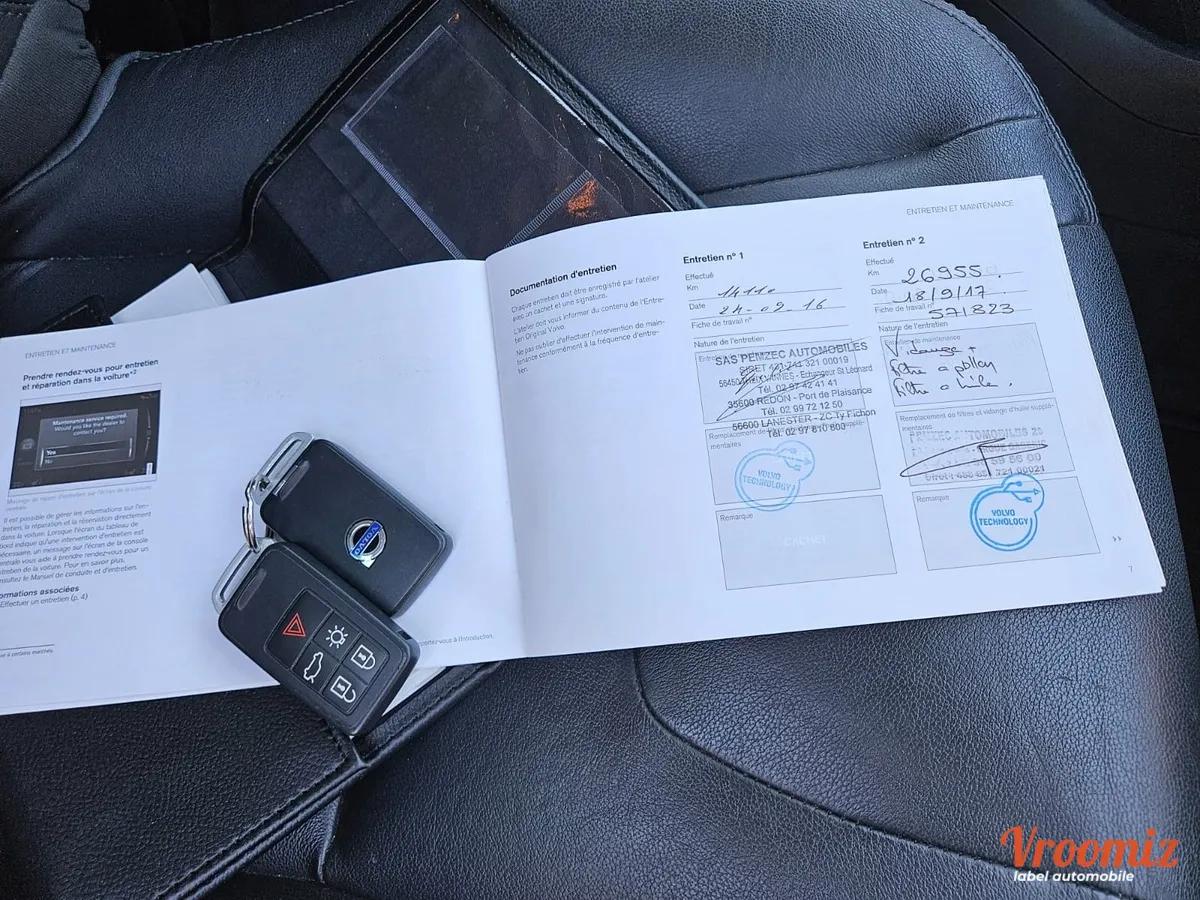 ENTRETIEN ET MAINTENANCE
Prendre rendez-vous pour entretien
et réparation dans la voiture*2
Maintenance service required.
Would you like the dealer to
contact you?
Yes
No
Il est possible de gérer les informations sur l'en-
tretien, la réparation et la réservation directement
dans la voiture. Lorsque l'écran du tableau de
bord indique qu'une intervention d'entretien est
nécessaire, un message sur l'écran de la console
centrale vous aide à prendre rendez-vous pour un
entretien de la voiture. Pour en savoir plus,
consultez le Manuel de conduite et d'entretien.
Effectuer un entretien (p. 4)
portez-vous à l'introduction.
VOLVO
Documentation d'entretien
Chaque entretien doit être enregistré par l'atelier
avec un cachet et une signature.
L'atelier doit vous informer du contenu de l'Entre-
tien Original Volvo.
Ne pas oublier d'effectuer l'intervention de main-
tenance conformément à la fréquence d'entre-
tien.
Entretien nº 1
Effectué
Km 14110
Date 24-02-16
Fiche de travail nº
Nature de l'entretien
SAS PEMZEC AUTOMOBILES
Tél. 02 97 42 41 41
35600 REDON - Port de Plaisance
Tél. 02 99 72 12 50
56600 LANESTER - ZC Ty Fichon
Tél. 02 97 810 600
mentaires
VOLVO
TECHNOLOGY
Remarque
CACHET
ENTRETIEN ET MAINTENANCE
Entretien nº 2
Effectué
Km 26955.
Date 18/9/17
Fiche de travail nº 571823
Nature de l'entretien
Vidange +
filtre a pollen
filtre a huile.
Remplacement de filtres et vidange d'huile supplé-
mentaires
PEMZEC AUTOMOBILES
VOLVO
TECHNOLOGY
Remarque
7
Vroomiz
label automobile